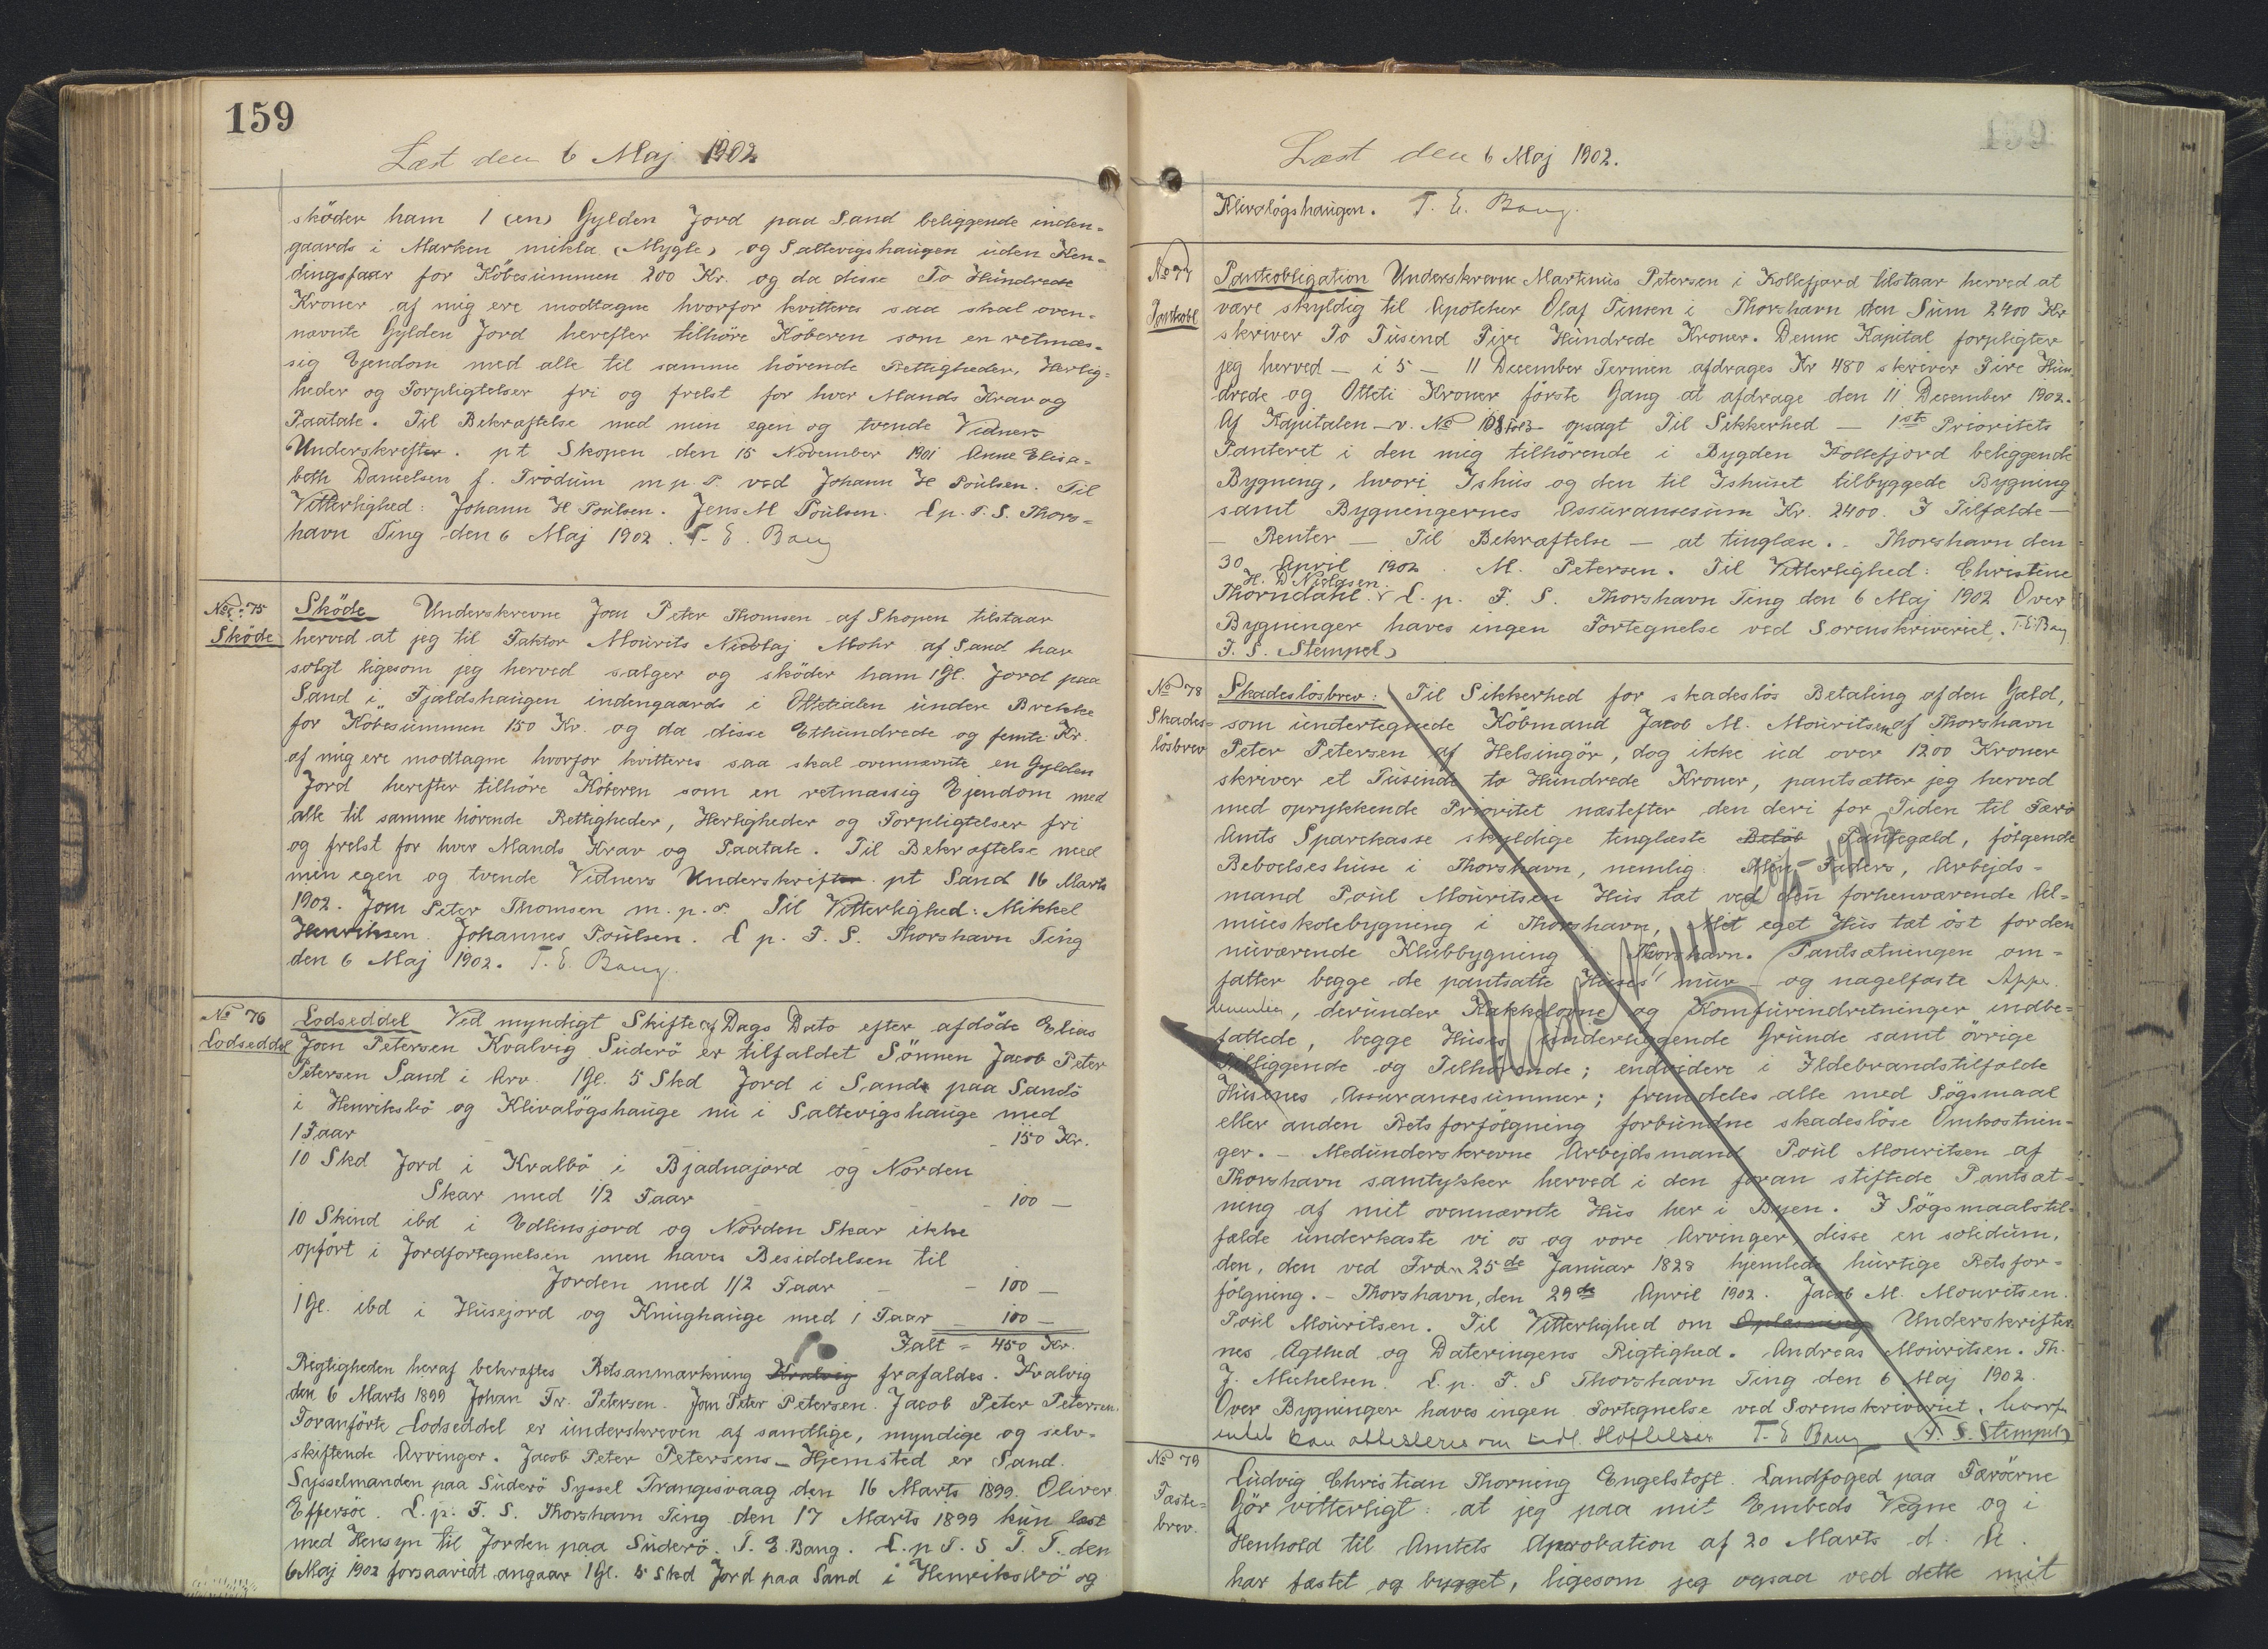 159
Læst den 6 Maj 1902
sköder ham 1 (en) Gylden Jord paa Sand beliggende inden-
gaards i Marken mikla (Mygle) og Saltevigshaugen uden Hen-
dingsfaar for Köbesummen 200 Kr. og da disse To Hundrede
Kroner af mig ere modtagne hvorfor kvitteres saa skal oven-
nævnte Gylden Jord herefter tilhöre Köberen som en retmæs-
sig Ejendom med alle til samme hörende Rettigheder, Herlig-
heder og Forpligtelser fri og frelst for hver Mands Krav og
Paatale. Til Bekræftelse med min egen og tvende Vidners
Underskrifter. pt Skopen den 15 November 1901 Anne Elisa-
beth Danielsen f. Trödum m. p. P. ved Johann H Poulsen. Til
Vitterlighed: Johann H Poulsen. Jens M Poulsen. L p. T. S. Thors-
havn Ting den 6 Maj 1902. T. E. Bang
No 75
Sköde
Sköde Underskrevne Joen Peter Thomsen af Skopen tilstaar
herved at jeg til Faktor Mourits Nicolaj Mohr af Sand har
solgt ligesom jeg herved sælger og sköder ham 1 Gl. Jord paa
Sand i Fjældshaugen indengaards i Ottetialen under Brekke
for Köbesummen 150 Kr. og da disse Ethundrede og femti Kr.
af mig ere modtagne hvorfor kvitteres saa skal ovennævnte en Gylden
Jord herefter tilhöre Köberen som en retmæssig Ejendom med
alle til samme hörende Rettigheder, Herligheder og Forpligtelser fri
og frelst for hver Mands Krav og Paatale. Til Bekræftelse med
min egen og tvende Vidners Underskrifter pt Sand 16 Marts
1902. Joen Peter Thomsen m. p. P. Til Vitterlighed: Mikkel
Henriksen. Johannes Poulsen. L p. T. S. Thorshavn Ting
den 6 Maj 1902. T. E. Bang.
No 76
Lodseddel
Lodseddel Ved myndigt Skifte af Dags Dato efter afdöde Elias
Joen Petersen Kvalvig Suderö er tilfaldet Sönnen Jacob Peter
Petersen Sand i Arv. 1 Gl. 5 Skd Jord i Sand paa Sandö
i Henriksbö og Klivalögshauge nu i Saltevigshauge med
1 Faar - - 150 Kr.
10 Skd Jord i Kvalbö i Bjadnajord og Norden
Skar med 1/2 Faar - - 100 -
10 Skind ibd i Edlinsjord og Norden Skar ikke
opfört i Jordfortegnelsen men haves Besiddelsen til
Jorden med 1/2 Faar - - 100 -
1 Gl. ibd i Husejord og Knughauge med 1 Faar - 100 -
Ialt = 450 Kr.
Rigtigheden heraf bekræftes Retsanmærkning Kvalvig frafaldes. Kvalvig
den 6 Marts 1899 Johan Fr. Petersen. Joen Peter Petersen. Jacob Peter Petersen.
Foranförte Lodseddel er underskreven af samtlige, myndige og selv-
skiftende Arvinger. Jacob Peter Petersens Hjemsted er Sand.
Sysselmanden paa Suderö Syssel Trangisvaag den 16 Marts 1899. Oliver
Effersöe. L. p. T. S. Thorshavn Ting den 17 Marts 1899 kun læst
med Hensyn til Jorden paa Suderö. T. E. Bang. L. p T. S T. T. den
6 Maj 1902 forsaavidt angaar 1 Gl. 5 Skd Jord paa Sand i Henriksbö og
Læst den 6 Maj 1902.
Klivalögshaugen. T. E. Bang.
No 77
Pantobl
Panteobligation Underskrevne Martinus Petersen i Kollefjord tilstaar herved at
være skyldig til Apoteker Olaf Finsen i Thorshavn den Sum 2400 Kr
skriver To Tusend Fire Hundrede Kroner. Denne Kapital forpligter
jeg herved - i 5 - 11 December Termin afdrages Kr 480 skriver Fire Hun-
drede og Otteti Kroner förste Gang at afdrage den 11 December 1902.
Af Kapitalen - v. No opsagt Til Sikkerhed - 1ste Prioritets
Panteret i den mig tilhörende i Bygden Kollefjord beliggende
Bygning, hvori Ishus og den til Ishuset tilbyggede Bygning
samt Bygningernes Assuransesum Kr. 2400. I Tilfælde -
- Renter - Til Bekræftelse - at tinglæse. - Thorshavn den
30 April 1902. M. Petersen. Til Vitterlighed: Christine
H. D Niclasen.
Thorndahl. L. p. T. S. Thorshavn Ting den 6 Maj 1902 Over
Bygninger haves ingen Fortegnelse ved Sorenskriveriet. T. E. Bang
T. S. (Stempel)
No 78
Skades-
lösbrev
Skadeslösbrev: Til Sikkerhed for skadeslös Betaling af den Gæld,
som undertegnede Köbmand Jacob M. Mouritsen af Thorshavn
Peter Petersen af Helsingör, dog ikke ud over 1200 Kroner
skriver et Tusinde to Hundrede Kroner, pantsætter jeg herved
med oprykkende Prioritet næstefter den deri for Tiden til Færö
Amts Sparekasse skyldige tinglæste Belöb Pantegæld, fölgende
Beboelseshuse i Thorshavn, nemlig: Min Faders, Arbejds-
mand Poul Mouritsen Hus tæt ved den forhenværende Al-
mueskolebygning i Thorshavn, Mit eget Hus tæt öst for den
nuværende Klubbygning i Thorshavn. Pantsætningen om-
fatter begge de pantsatte Huses mur- og nagelfaste Apper-
tinentier, derunder Kakkelovne og Komfurindretninger indbe-
fattede, begge Huses underliggende Grunde samt övrige
Tilliggende og Tilhörende; endvidere i Ildebrandstilfælde
Husenes Assuransesummer; fremdeles alle med Sögsmaal
eller anden Retsforfölgning forbundne skadeslöse Omkostnin-
ger. - Medunderskrevne Arbejdsmand Poul Mouritsen af
Thorshavn samtykker herved i den foran stiftede Pantsæt-
ning af mit ovennævnte Hus her i Byen. I Sögsmaalstil-
fælde underkaste vi os og vore Arvinger, disse en solidum,
den, den ved Frdn 25de Januar 1828 hjemlede hurtige Retsfor-
fölgning. - Thorshavn, den 29de April 1902. Jacob M. Mouritsen.
Poul Mouritsen. Til Vitterlighed om Oplæsning Underskrifter
nes Ægthed og Dateringens Rigtighed. Andreas Mouritsen. Th.
J. Michelsen. L. p. T. S Thorshavn Ting den 6 Maj 1902.
Over Bygninger haves ingen Fortegnelse ved Sorenskriveriet, hvorfor
intet kan attesteres om Hæftelser T. E Bang (T. S. Stempel)
No 79
Fæste-
brev.
Ludvig Christian Thorning Engelstoft. Landfoged paa Færöerne
Gör vitterligt: at jeg paa mit Embeds Vegne og i
Henhold til Amtets Aprobation af 20 Marts d. A.
har fæstet og bygget, ligesom jeg ogsaa ved dette mit